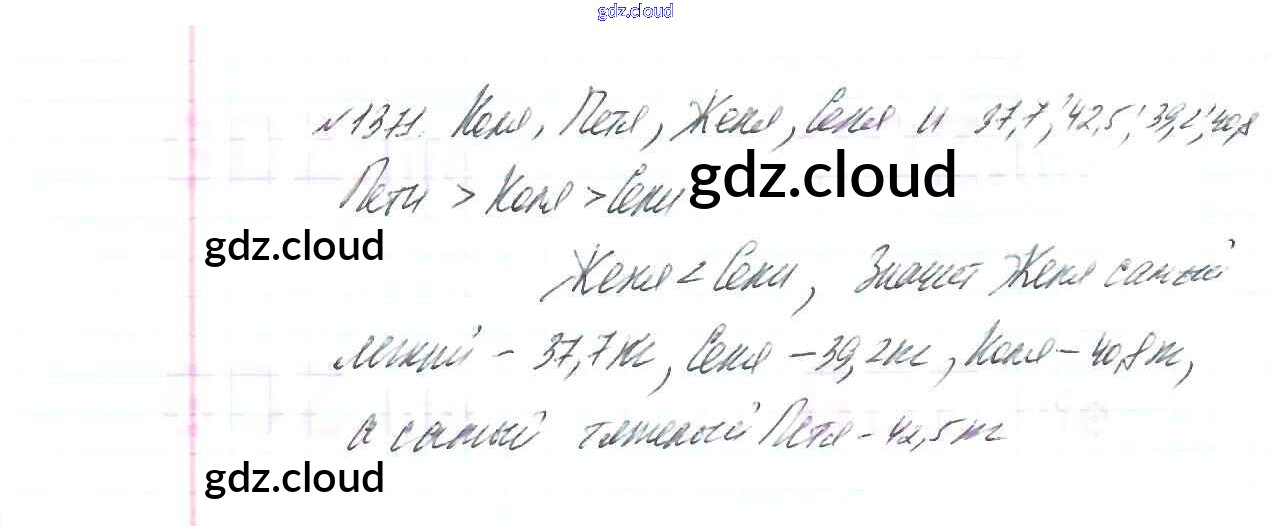 gdz.cloud
№1371. Коля, Петя, Женя, Сеня и 37,7; 42,5; 39,2; 40,8
Пети > Коля > Сени
gdz.cloud
gdz.cloud
Женя < Сени, Значит Женя самый
легкий - 37,7кг, Сеня - 39,2кг, Коля - 40,8кг,
а самый тяжелый Петя - 42,5кг
gdz.cloud